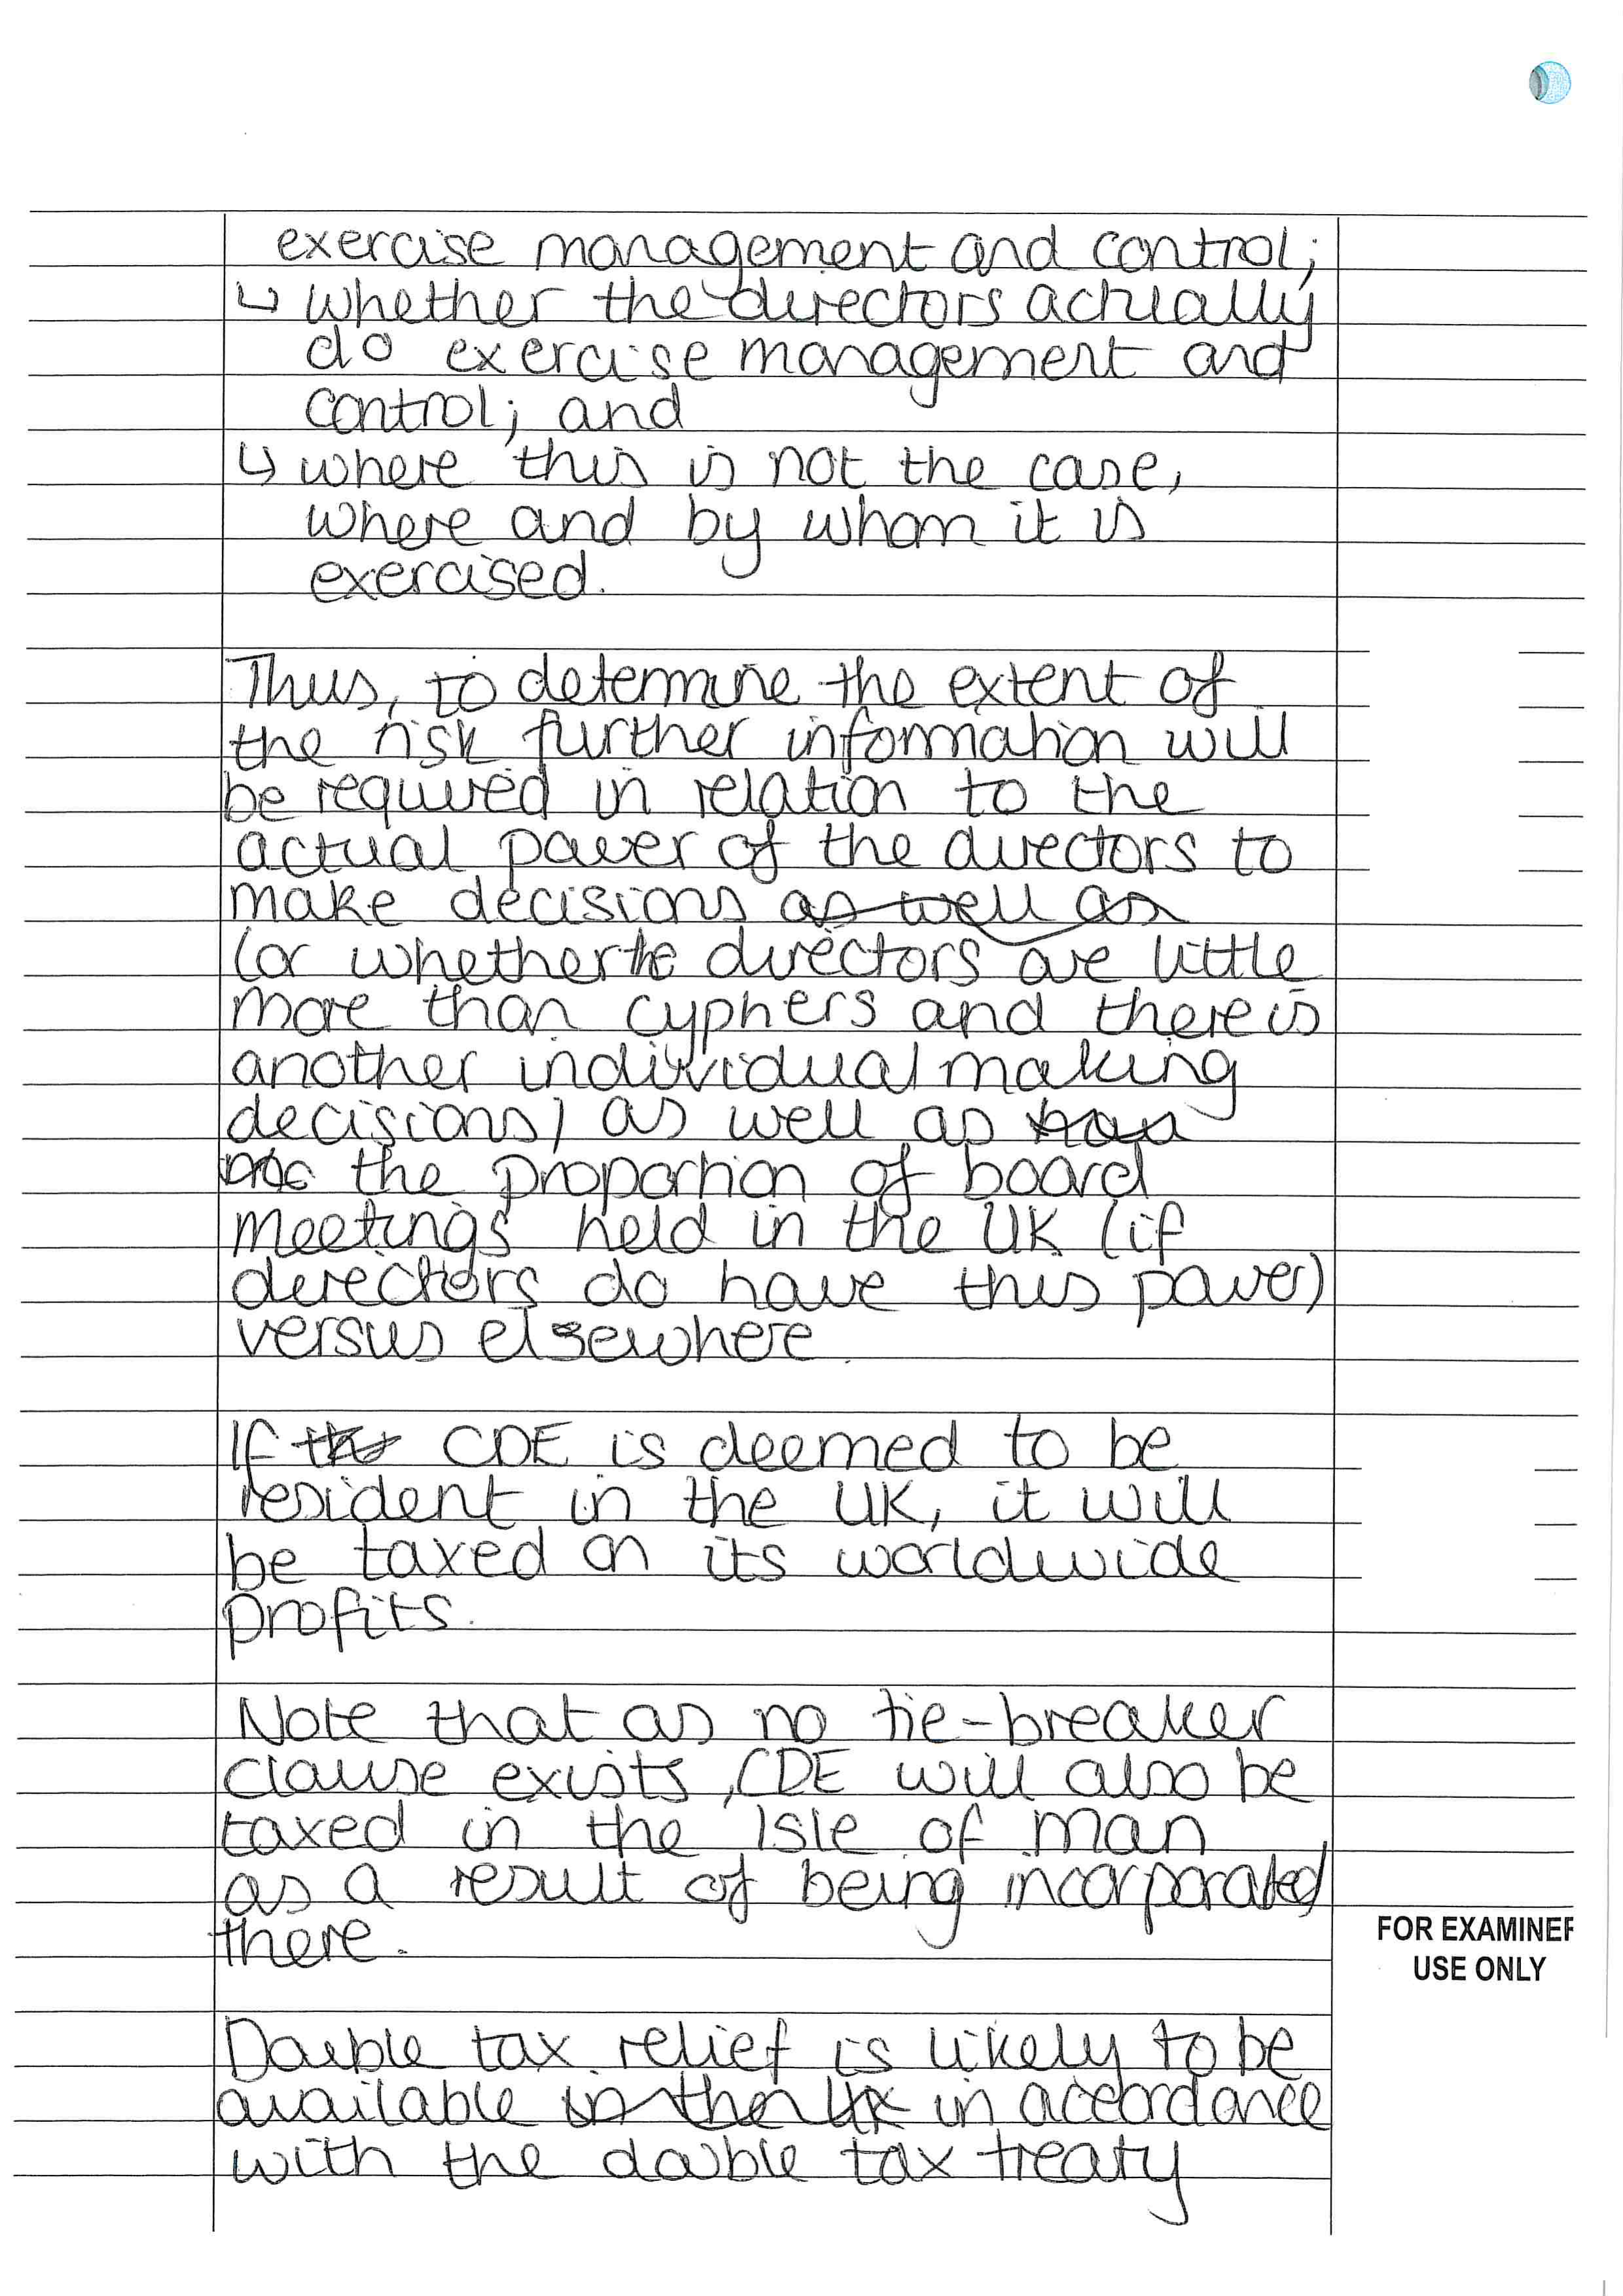 exercise management and control;
↳ whether the directors actually
do exercise management and
control; and
↳ where this is not the case,
where and by whom it is
exercised.
Thus, to determine the extent of
the risk further information will
be required in relation to the
actual power of the directors to
make decisions as well as
(or whether the directors are little
more than cyphers and there is
another individual making
decisions) as well as
the proportion of board
meetings held in the UK (if
derectors do have this power)
versus elsewhere.
If the CDE is deemed to be
resident in the UK, it will
be taxed on its worldwide
profits.
Note that as no tie-breaker
clause exists, CDE will also be
taxed in the Isle of Man
as a result of being incorporated
there.
Double tax relief is likely to be
available in the UK in accordance
with the double tax treaty
FOR EXAMINER
USE ONLY